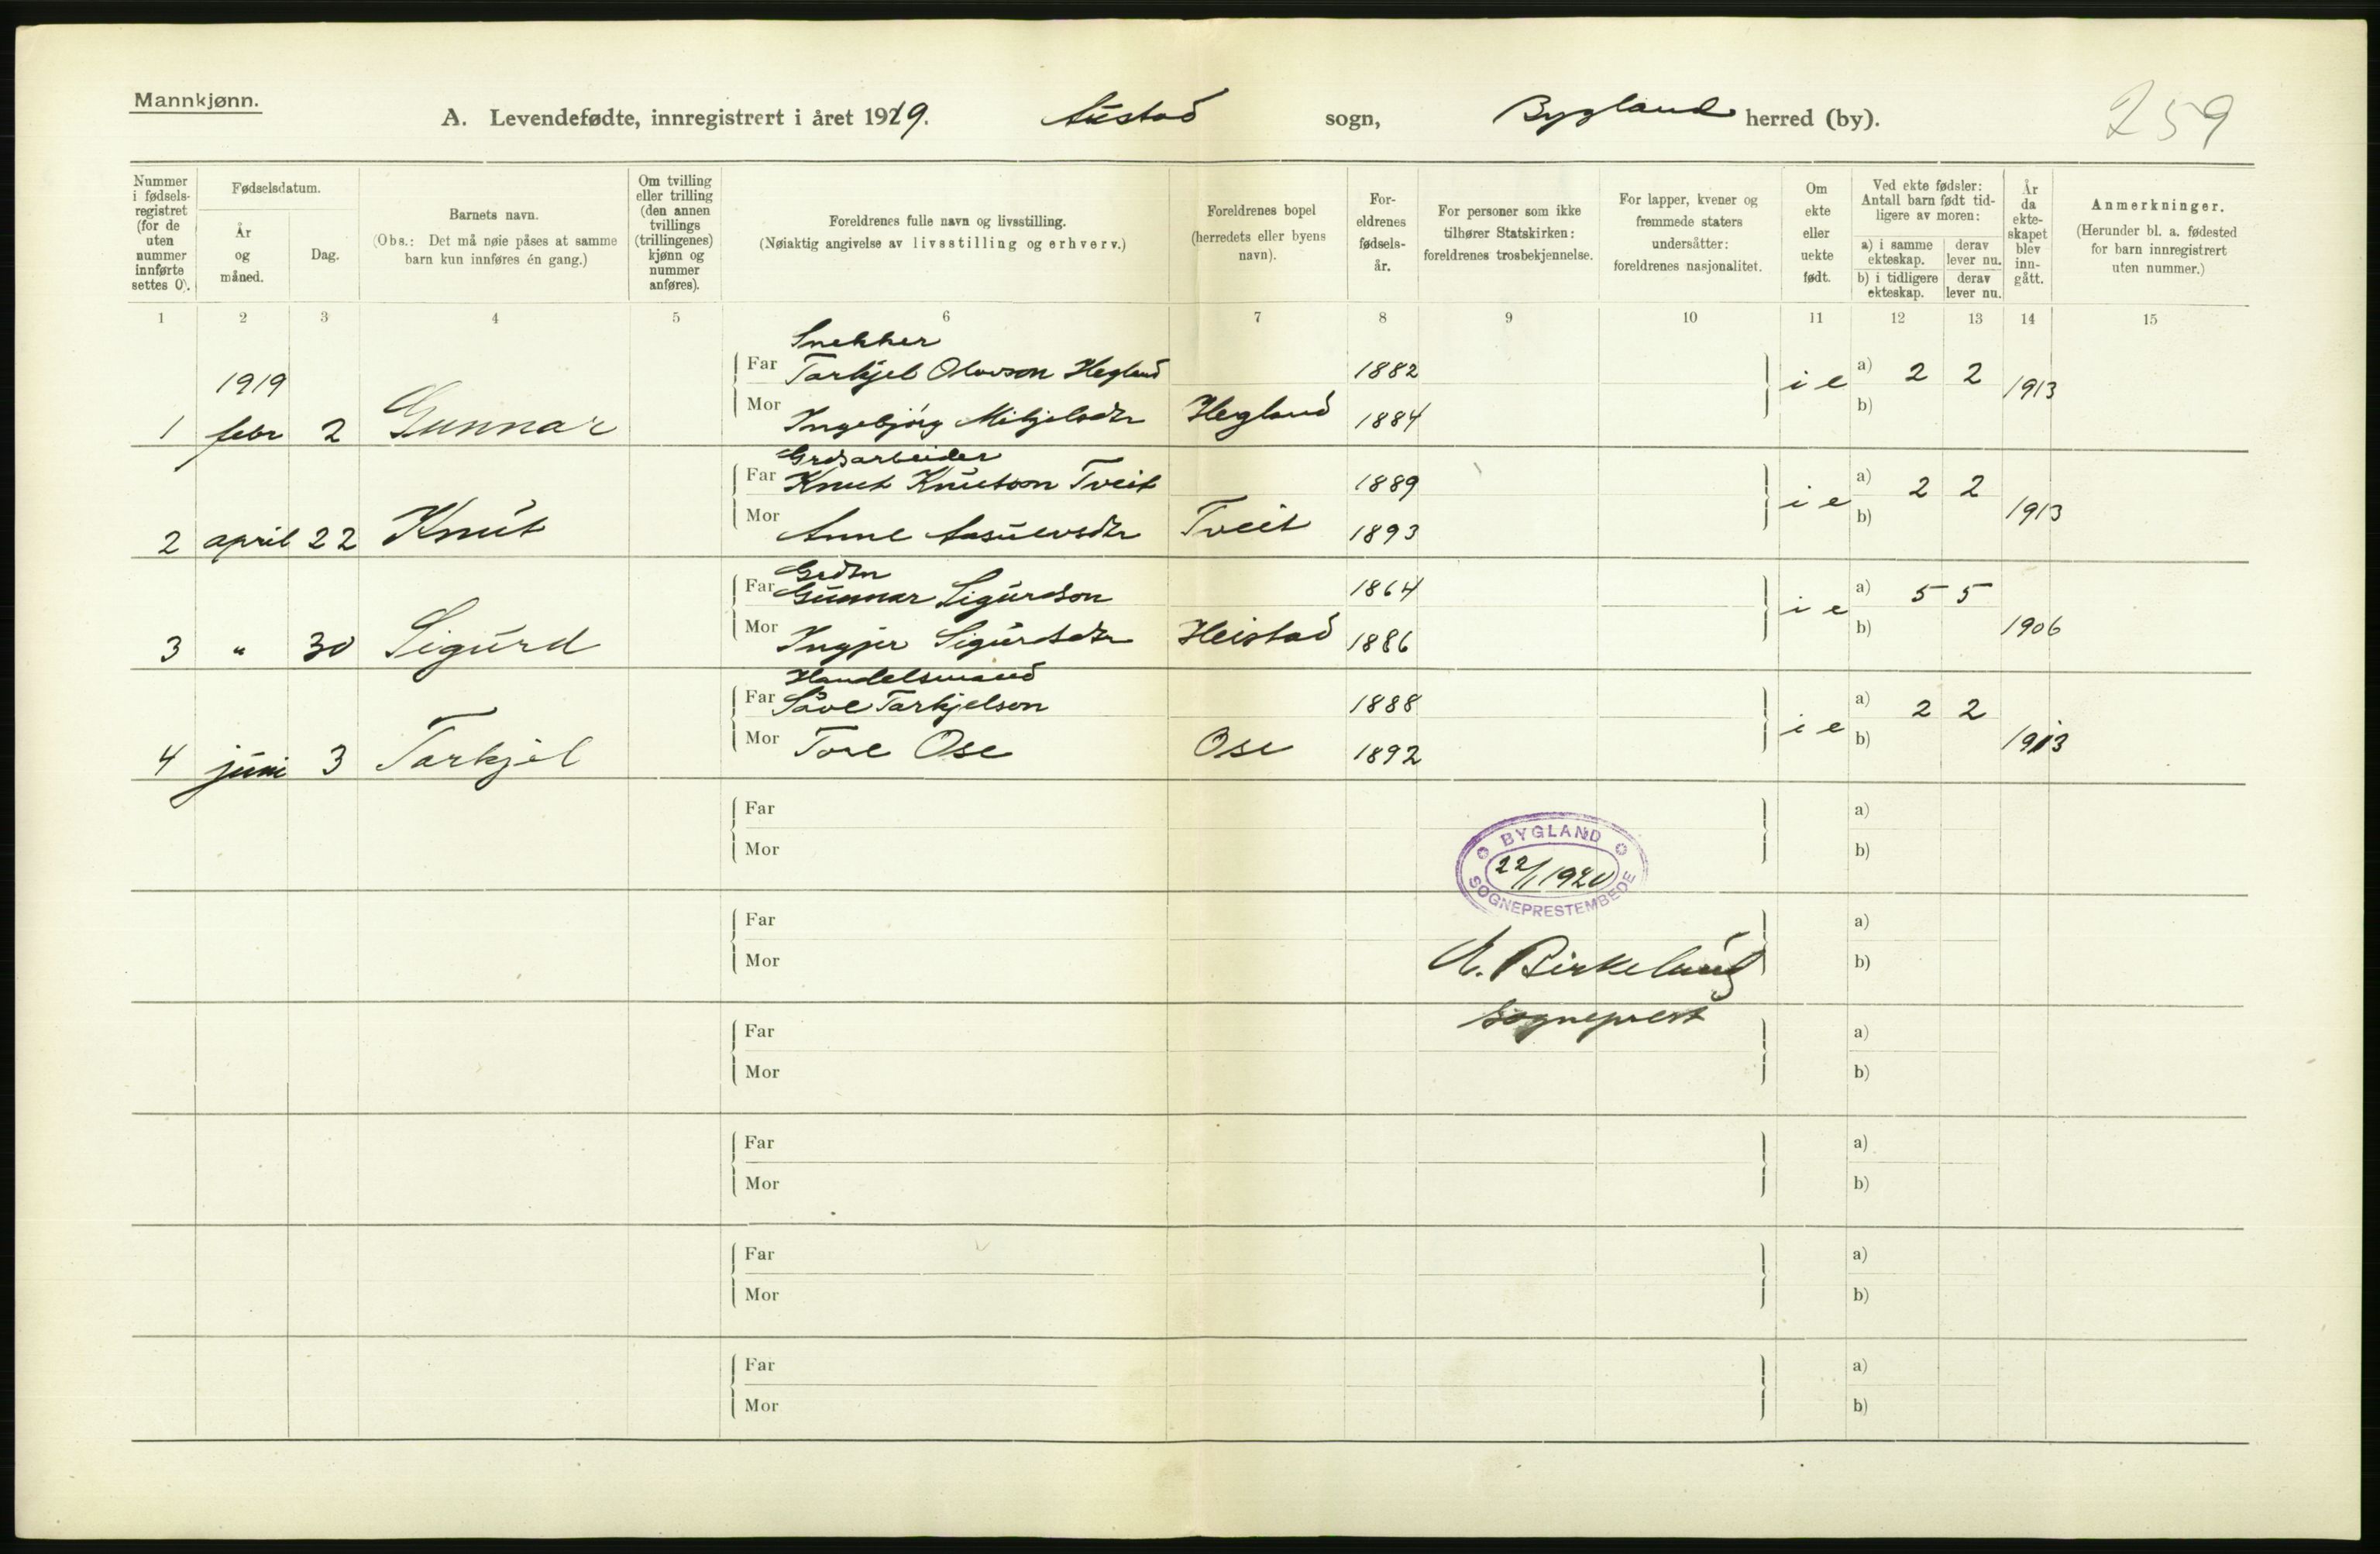 Mannkjønn.
A. Levendefødte, innregistrert i året 1919. Austad sogn, Bygland herred (by).
259
Nummer i fødsels-registret (for de uten nummer innførte settes 0).
Fødselsdatum.
År og måned.
Dag.
Barnets navn.
(Obs.: Det må nøie påses at samme barn kun innføres én gang.)
Om tvilling eller trilling (den annen tvillings (trillingenes) kjønn og nummer anføres).
Foreldrenes fulle navn og livsstilling.
(Nøiaktig angivelse av livsstilling og erhverv.)
Foreldrenes bopel (herredets eller byens navn).
For-eldrenes fødsels-år.
For personer som ikke tilhører Statskirken: foreldrenes trosbekjennelse.
For lapper, kvener og fremmede staters undersåtter: foreldrenes nasjonalitet.
Om ekte eller uekte født.
Ved ekte fødsler: Antall barn født tid-ligere av moren:
a) i samme ekteskap.
derav lever nu.
b) i tidligere ekteskap.
derav lever nu.
År da ekte-skapet blev inn-gått.
Anmerkninger.
(Herunder bl. a. fødested for barn innregistrert uten nummer.)
1 2 3 4 5 6 7 8 9 10 11 12 13 14 15
Snekker
1919 Far Tarkjel Olavson Hegland 1882 i e a) 2 2 1913
1 febr 2 Gunnar Mor Ingebjörg Mikjelsdtr Hegland 1884 b)
Grdsarbeider
Far Knut Knutson Tveit 1889 i e a) 2 2 1913
2 april 22 Knut Mor Anne Aasulvsdtr Tveit 1893 b)
Grdbr
Far Gunnar Sigurdson 1864 i e a) 5 5
3 " 30 Sigurd Mor Ingjer Sigurdsdtr Heistad 1886 b) 1906
Handelsmand
Far Såve Tarkjelson 1888 i e a) 2 2
4 juni 3 Tarkjel Mor Tore Ose Ose 1892 b) 1913
Far a)
Mor b)
BYGLAND
22/1 1920
SOGNEPRESTEMBEDE
Far a)
Mor b)
A. Birkeland
sogneprest
Far a)
Mor b)
Far a)
Mor b)
Far a)
Mor b)
Far a)
Mor b)